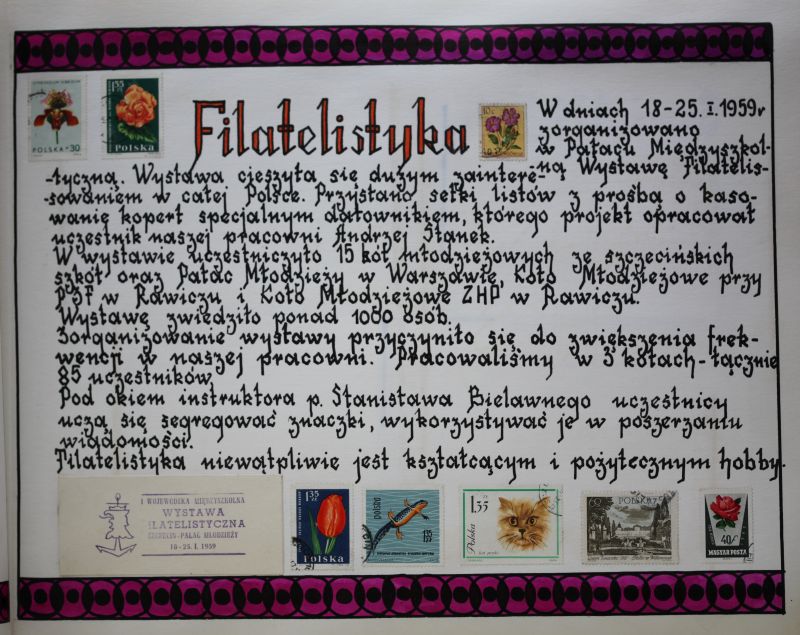 POLSKA 30
1.35 ZŁ
POLSKA
Filatelistyka
10c
W dniach 18-25.I.1959r
zorganizowano
w Pałacu Międzyszkol-
-ną Wystawę Filatelis-
-tyczną. Wystawa cieszyła się dużym zaintere-
-sowaniem w całej Polsce. Przysłano setki listów z prośbą o kaso-
wanie kopert specjalnym datownikiem, którego projekt opracował
uczestnik naszej pracowni Andrzej Stanek.
W wystawie uczestniczyło 15 kół młodzieżowych ze szczecińskich
szkół oraz Pałac Młodzieży w Warszawie, Koło Młodzieżowe przy
PSF w Rawiczu i Koło Młodzieżowe ZHP w Rawiczu.
Wystawę zwiedziło ponad 1000 osób.
Zorganizowanie wystawy przyczyniło się do zwiększenia frek-
wencji w naszej pracowni. Pracowaliśmy w 3 kołach-łącznie
85 uczestników
Pod okiem instruktora p. Stanisława Bielawnego uczestnicy
uczą się segregować znaczki, wykorzystywać je w poszerzaniu
wiadomości.
Filatelistyka niewątpliwie jest kształcącym i pożytecznym hobby.
I WOJEWÓDZKA MIĘDZYSZKOLNA
WYSTAWA
FILATELISTYCZNA
SZCZECIN-PAŁAC MŁODZIEŻY
18-25.I.1959
1.35 ZŁ
Polska
1.35
Polska
60
POLSKA
40f
MAGYAR POSTA